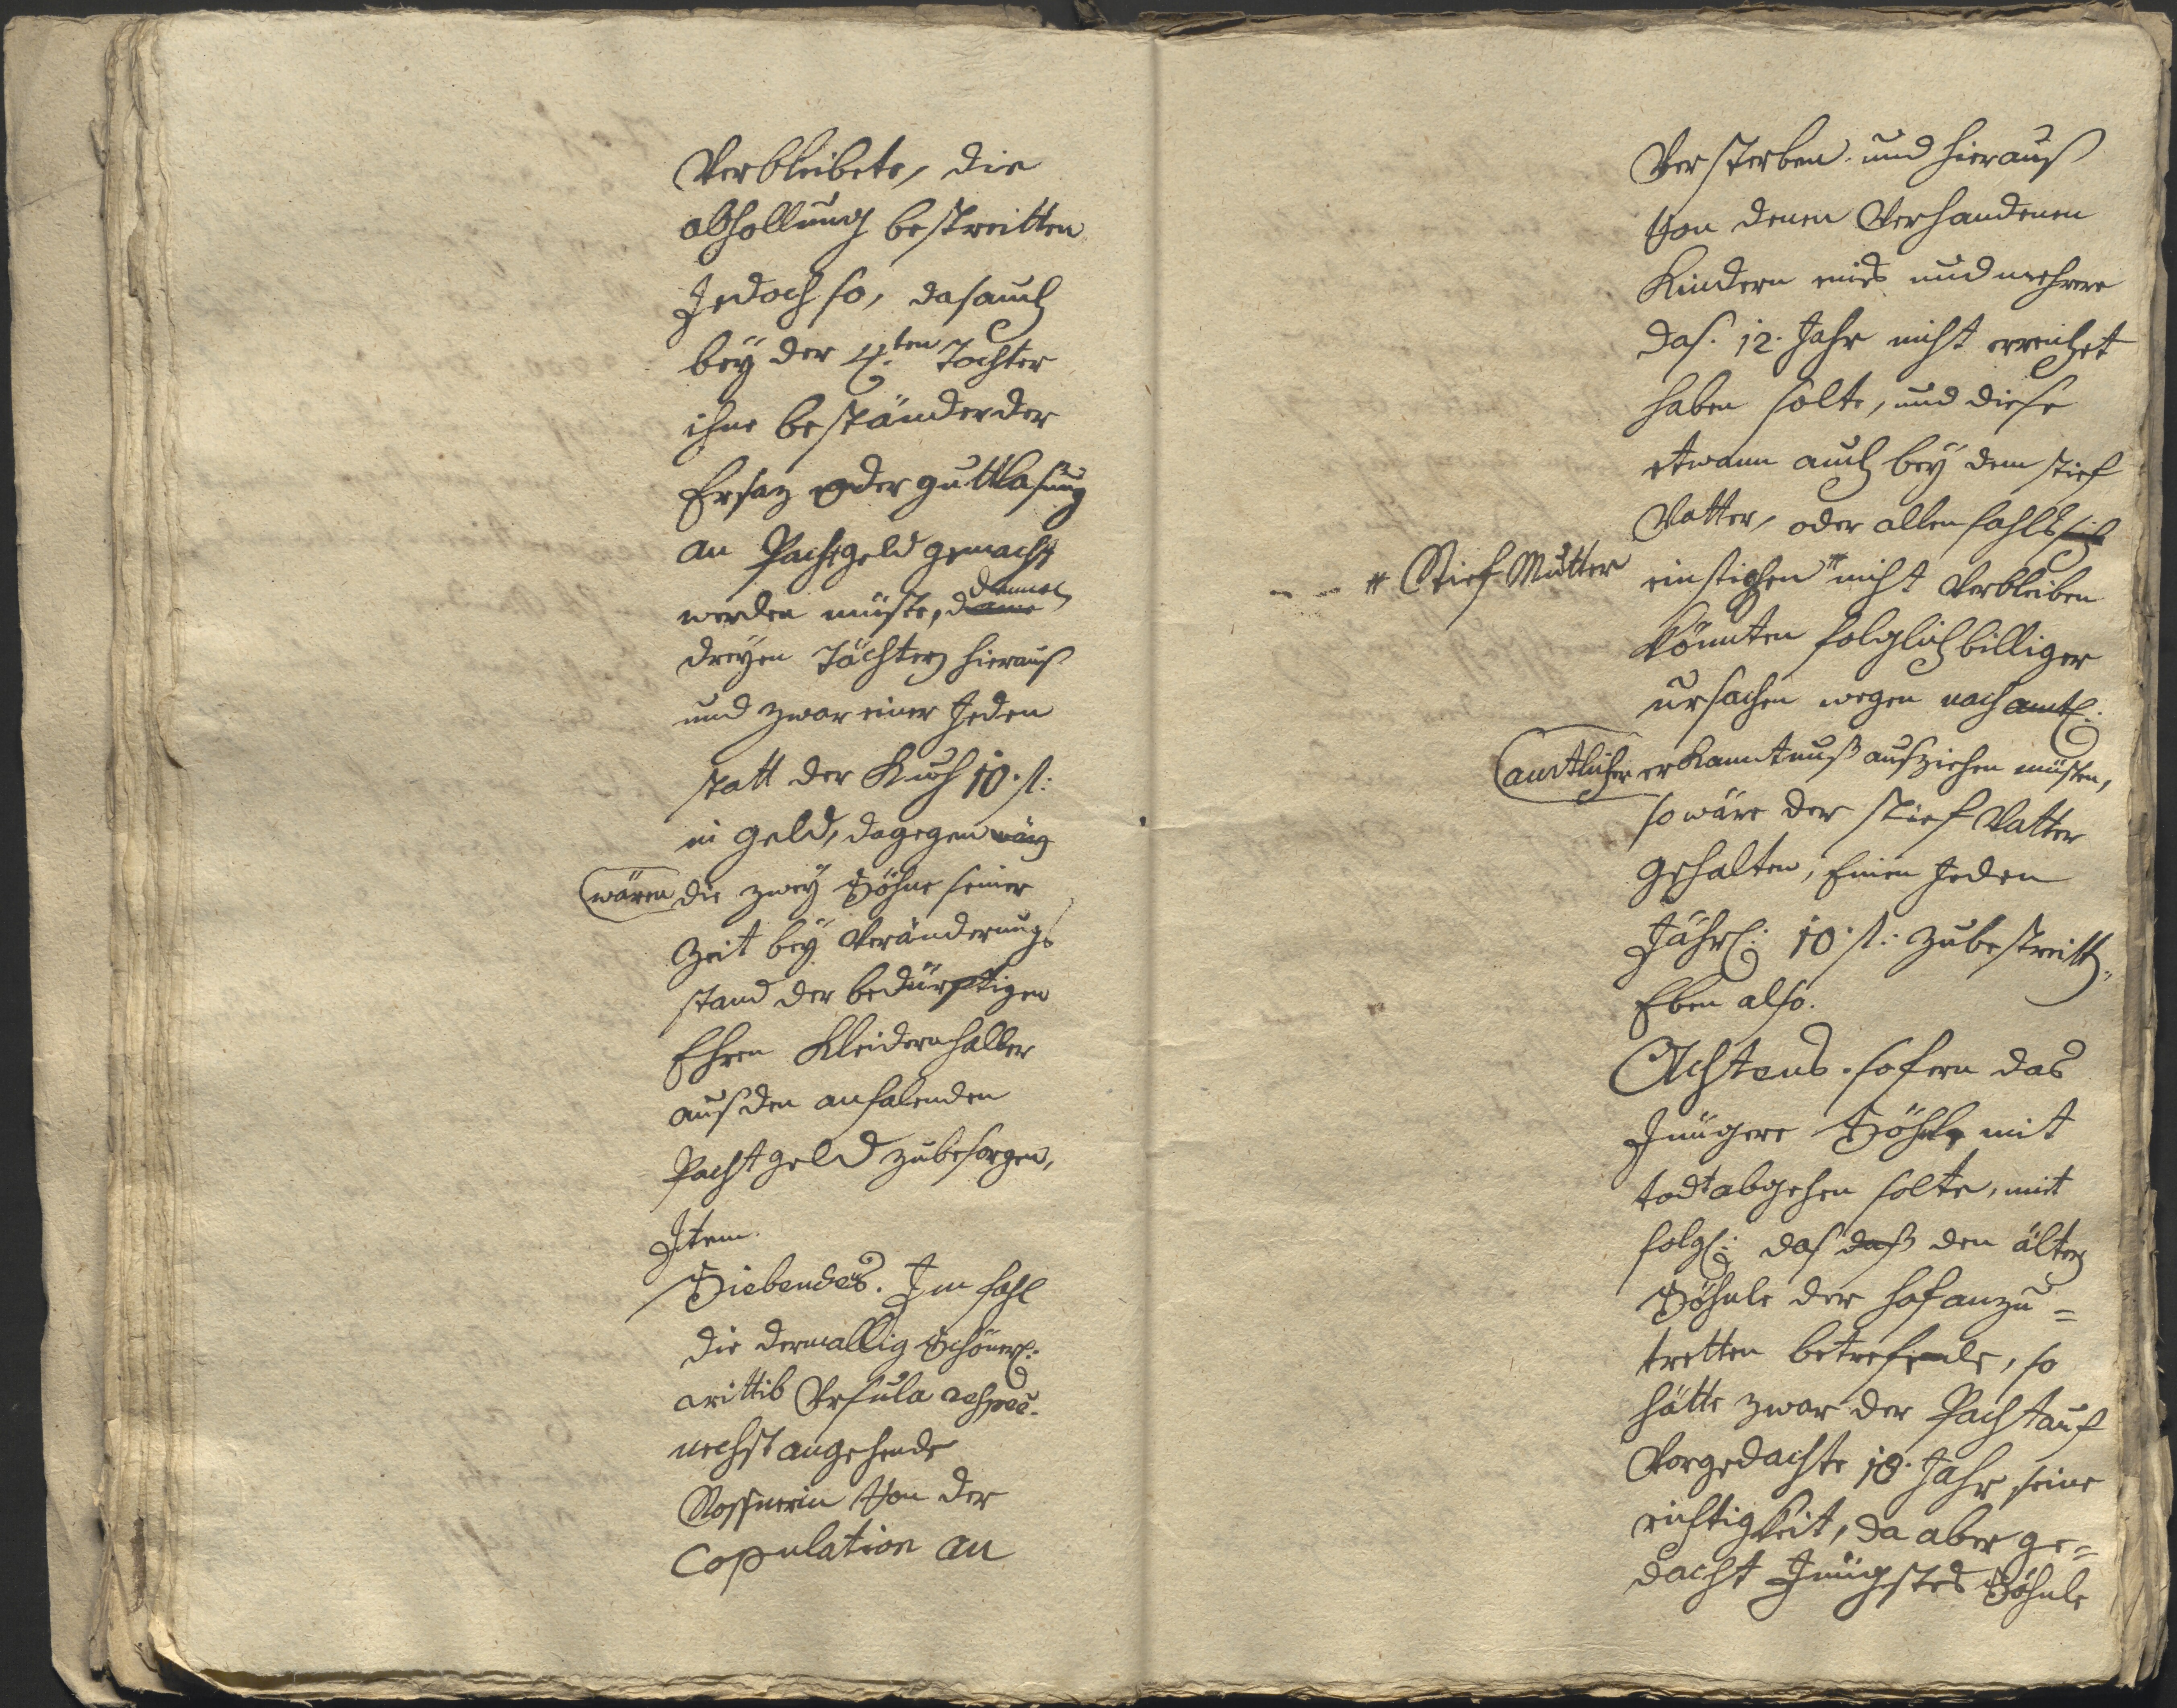 Verbleibete, die
abhollung bestreitten
Jedoch so, das auch
beÿ der 4.ten Tochter
ihne beständer der
Ersaz oder guttlasung
an Pachtgeld gemacht
werden müste, dannen
dreÿen Töchtern hierauß
und zwar einer Jeden
statt der Kuh 10. f:
in geld, dagegen wärn
wären die zweÿ Söhne seiner
Zeit beÿ Veränderungs
stand der bedürftigen
Ehren Kleidern halber
aus den anfalenden
Pachtgeld zubesorgen,
Item.
Siebendes. Im fahl
die dermallig
wittib Ursula respec.
nechst angehende
Von der
Copulation an
Versterben und hierauß
Von denen Verhandenen
Kindern eines und mehrere
das. 12. Jahr nicht erreichet
haben solte, und diese
etwann auch beÿ dem stief
Vatter, oder allen fahls sich
# Stief Mutter
einstigen # nicht Verbleiben
könnten folglich billiger
ursachen wegen nach amtl:
amtlicher erkanntnuß ausziehen müsten,
so wäre der stief Vatter
gehalten, Einen Jeden
Jährl: 10. f: zubestreitten,
Eben also.
Achtens. sofern das
Jüngere Söhnle mit
todt abgehen solte, mit
folgl: das daß den ältern
Söhnle der hof anzu=
tretten betrefende, so
hätte zwar der Pacht auf
Vorgedachte 18. Jahr seine
richtigkeit, da aber ge=
dacht Jüngstes Söhnle